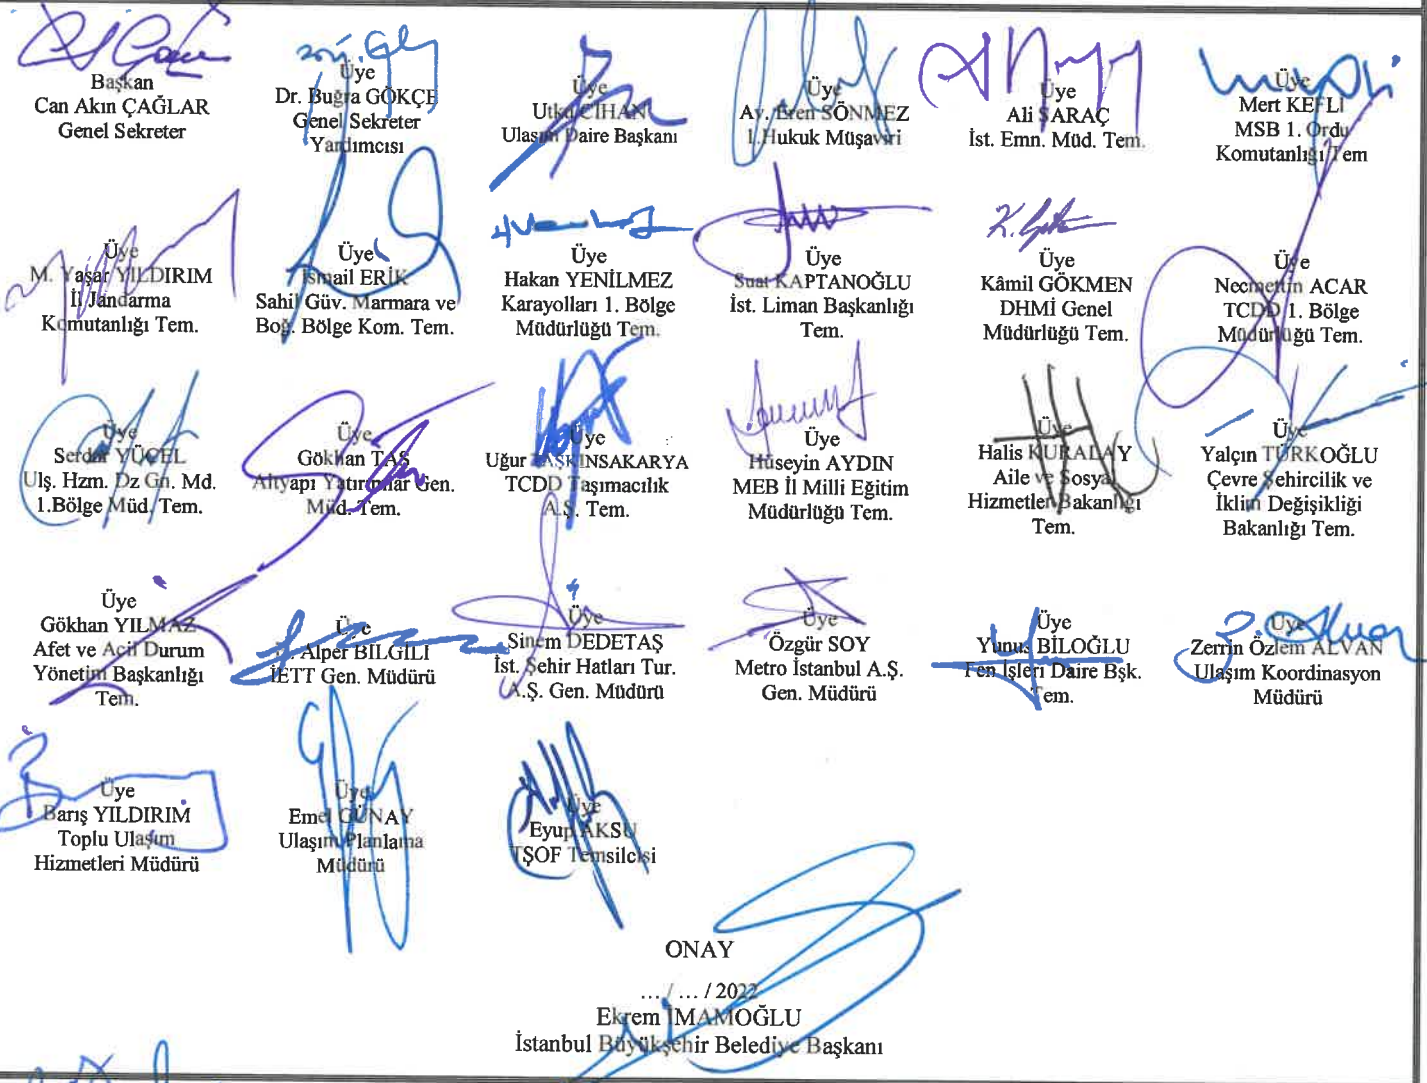 Başkan
Can Akın ÇAĞLAR
Genel Sekreter
Üye
Dr. Buğra GÖKÇE
Genel Sekreter
Yardımcısı
Üye
Utku CİHAN
Ulaşım Daire Başkanı
Üye
Av. Eren SÖNMEZ
1.Hukuk Müşaviri
Üye
Ali SARAÇ
İst. Emn. Müd. Tem.
Üye
Mert KEFLİ
MSB 1. Ordu
Komutanlığı Tem
Üye
M. Yaşar YILDIRIM
İl Jandarma
Komutanlığı Tem.
Üye
İsmail ERİK
Sahil Güv. Marmara ve
Boğ. Bölge Kom. Tem.
Üye
Hakan YENİLMEZ
Karayolları 1. Bölge
Müdürlüğü Tem.
Üye
Suat KAPTANOĞLU
İst. Liman Başkanlığı
Tem.
Üye
Kâmil GÖKMEN
DHMİ Genel
Müdürlüğü Tem.
Üye
Necmettin ACAR
TCDD 1. Bölge
Müdürlüğü Tem.
Üye
Serdar YÜCEL
Ulş. Hzm. Dz Gn. Md.
1.Bölge Müd. Tem.
Üye
Gökhan TAŞ
Altyapı Yatırımlar Gen.
Müd. Tem.
Üye
Uğur TAŞKINSAKARYA
TCDD Taşımacılık
A.Ş. Tem.
Üye
Hüseyin AYDIN
MEB İl Milli Eğitim
Müdürlüğü Tem.
Üye
Halis KURALAY
Aile ve Sosyal
Hizmetler Bakanlığı
Tem.
Üye
Yalçın TÜRKOĞLU
Çevre Şehircilik ve
İklim Değişikliği
Bakanlığı Tem.
Üye
Gökhan YILMAZ
Afet ve Acil Durum
Yönetim Başkanlığı
Tem.
Üye
Alper BİLGİLİ
İETT Gen. Müdürü
Üye
Sinem DEDETAŞ
İst. Şehir Hatları Tur.
A.Ş. Gen. Müdürü
Üye
Özgür SOY
Metro İstanbul A.Ş.
Gen. Müdürü
Üye
Yunus BİLOĞLU
Fen İşleri Daire Bşk.
Tem.
Üye
Zerrin Özlem ALVAN
Ulaşım Koordinasyon
Müdürü
Üye
Barış YILDIRIM
Toplu Ulaşım
Hizmetleri Müdürü
Üye
Emel GÜNAY
Ulaşım Planlama
Müdürü
Üye
Eyup AKSU
TŞOF Temsilcisi
ONAY
... / ... / 2022
Ekrem İMAMOĞLU
İstanbul Büyükşehir Belediye Başkanı